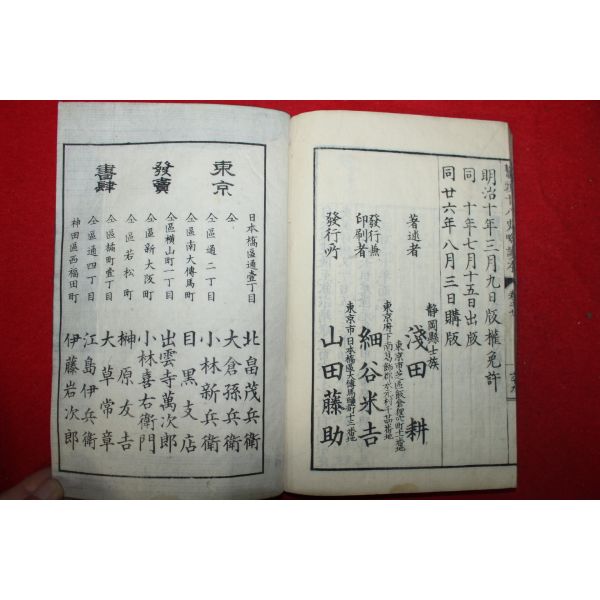 明治十年三月九日版權免許
同 十年七月十五日出版
同 廿六年八月三日購版
靜岡縣士族
著述者 淺田耕
東京市芝區飯倉狸穴町十二番地
發行兼印刷者 細谷米吉
發行所 山田藤助
東京市日本橋區大傳馬鹽町十三番地
東京
發賣
書肆
日本橋區通壹丁目 北畠茂兵衛
仝 大倉孫兵衛
仝區通二丁目 小林新兵衛
仝區南大傳馬町 目黒支店
仝區橫山町一丁目 出雲寺萬次郎
仝區新大阪町 小林喜右衛門
仝區若松町 榊原友吉
仝區橘町壹丁目 大草常章
仝區通四丁目 江島伊兵衛
神田區西福田町 伊藤岩次郎